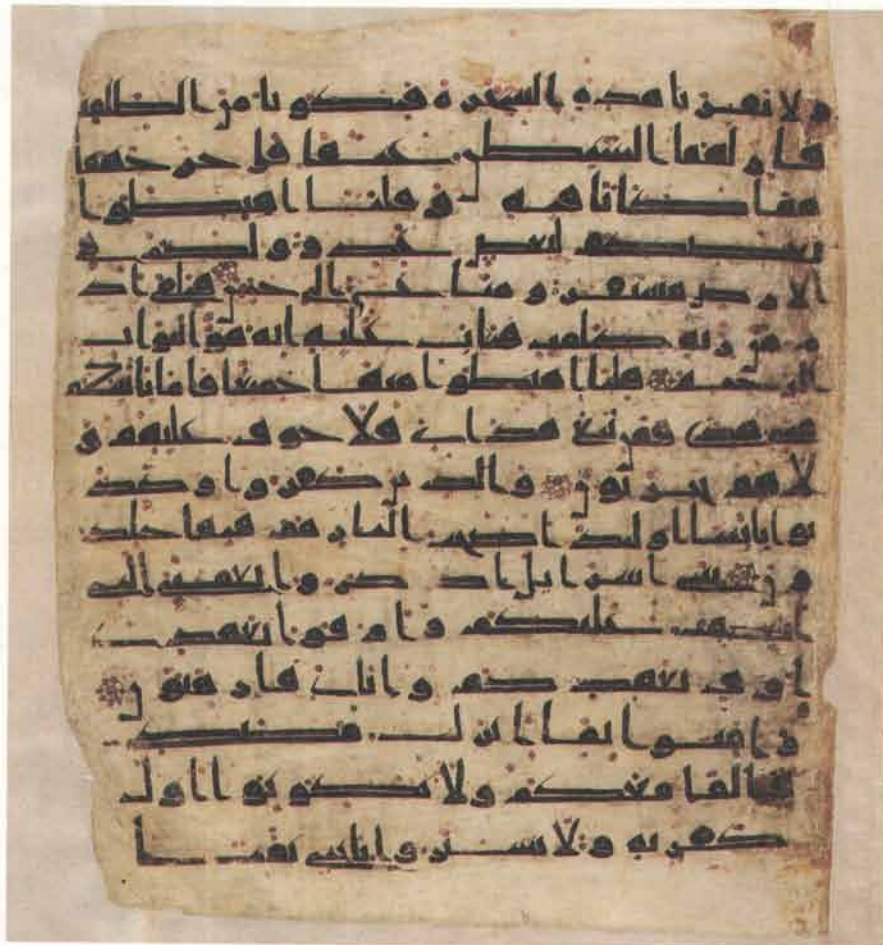 ولا تقربا هذه الشجرة فتكونا من الظلمين
فازلهما الشيطن عنها فاخرجهما
مما كانا فيه وقلنا اهبطوا
بعضكم لبعض عدو ولكم في
الارض مستقر ومتاع الى حين فتلقى اد
م من ربه كلمت فتاب عليه انه هو التواب
الرحيم قلنا اهبطوا منها جميعا فاما ياتينكم
منى هدى فمن تبع هداى فلا خوف عليهم و
لا هم يحزنون والذين كفروا وكذ
بوا بايتنا اولئك اصحب النار هم فيها خلد
ون يبنى اسرايل اذكروا نعمتى التى
انعمت عليكم واوفوا بعهدى
اوف بعهدكم واياى فارهبون
وامنوا بما انزلت مصدقا
لما معكم ولا تكونوا اول
كفر به ولا تشتروا بايتى ثمنا